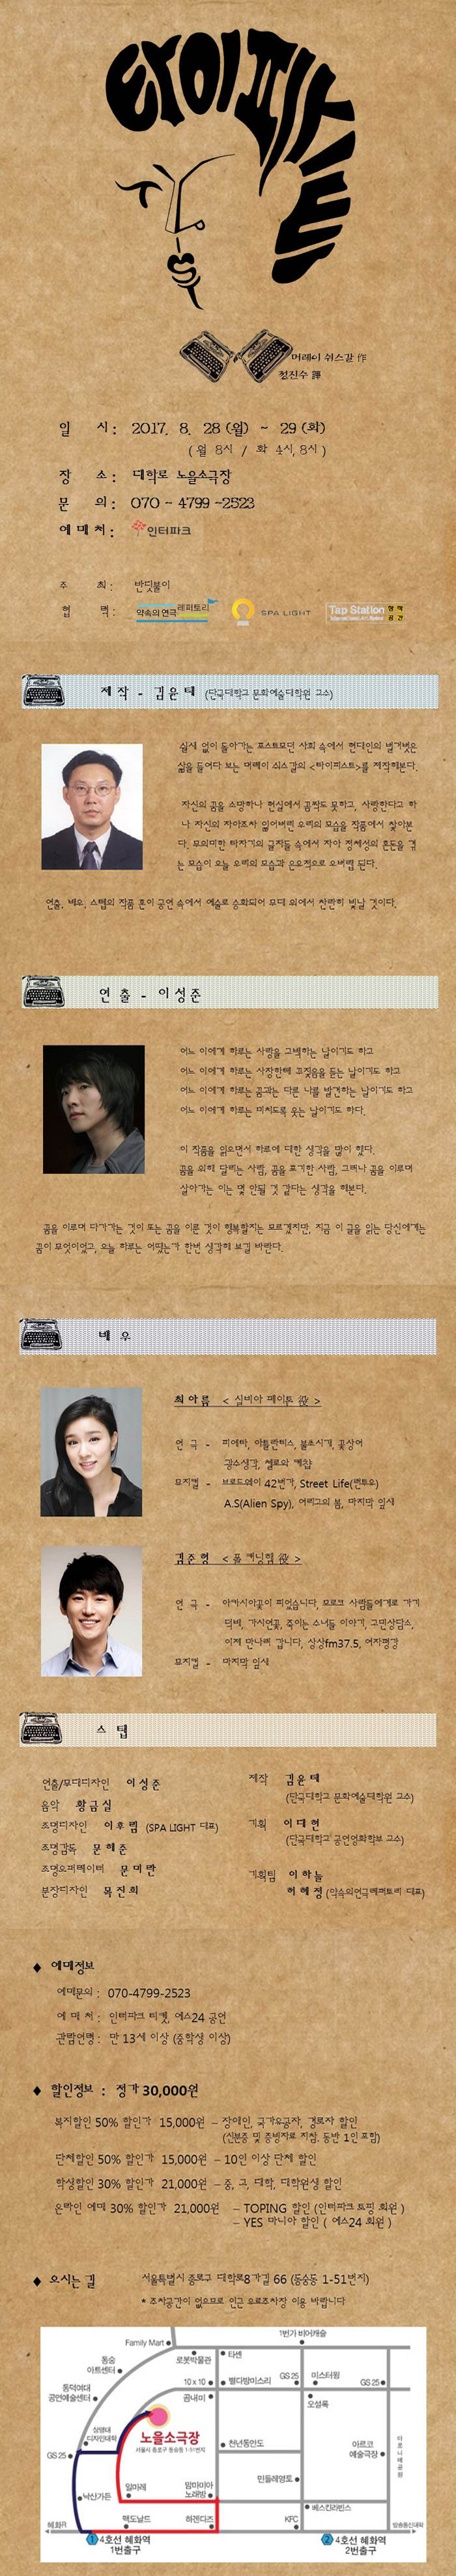 타이피스트
머레이 쉬스갈 作
천진수 譯
일 시 : 2017. 8. 28 (월) ~ 29 (화)
( 월 8시 / 화 4시, 8시 )
장 소 : 대학로 노을소극장
문 의 : 070 - 4799 -2523
예 매 처 : 인터파크
주 최 : 반딧불이
협 력 : 약속의 연극 레퍼토리 SPA LIGHT Tap Station 창작공간
제 작 - 김 윤 태 (단국대학교 문화예술대학원 교수)
쉴새 없이 돌아가는 포스트모던 사회 속에서 현대인의 벌거벗은
삶을 들여다 보는 머레이 쉬스갈의 <타이피스트>를 제작해본다.
자신의 꿈을 소망하나 현실에서 꼼짝도 못하고, 사랑한다고 하
나 자신의 자아조차 잃어버린 우리의 모습을 작품에서 찾아본
다. 무의미한 타자기의 글자들 속에서 자아 정체성의 혼돈을 겪
는 모습이 오늘 우리의 모습과 은유적으로 오버랩 된다.
연출, 배우, 스텝의 작품 혼이 공연 속에서 예술로 승화되어 무대 위에서 찬란히 빛날 것이다.
연 출 - 이 성 준
어느 이에게 하루는 사랑을 고백하는 날이기도 하고
어느 이에게 하루는 사장한테 꾸짖음을 듣는 날이기도 하고
어느 이에게 하루는 꿈과는 다른 나를 발견하는 날이기도 하고
어느 이에게 하루는 미치도록 웃는 날이기도 하다.
이 작품을 읽으면서 하루에 대한 생각을 많이 했다.
꿈을 위해 달리는 사람, 꿈을 포기한 사람, 그러나 꿈을 이루며
살아가는 이는 몇 안될 것 같다는 생각을 해본다.
꿈을 이루며 다가가는 것이 또는 꿈을 이룬 것이 행복할지는 모르겠지만, 지금 이 글을 읽는 당신에게는
꿈이 무엇이었고, 오늘 하루는 어땠는가 한번 생각해 보길 바란다.
배 우
최 아 름 < 실비아 페이톤 役 >
연 극 - 피에타, 아틀란티스, 불초시개, 꽃상어
광수생각, 첼로와 케찹
뮤지컬 - 브로드웨이 42번가, Street Life(랩튜유)
A.S(Alien Spy), 어리그의 봄, 마지막 잎새
김 준 형 < 폴 캐닝햄 役 >
연 극 - 아카시아꽃이 피었습니다, 모로코 사람들에게로 가기
덕비, 가시연꽃, 죽이는 소녀들 이야기, 고민상담소,
이제 만나러 갑니다, 상상fm37.5, 여자평강
뮤지컬 - 마지막 잎새
스 텝
연출/무대디자인 이 성 준
음악 황 금 실
조명디자인 이 후 림 (SPA LIGHT 대표)
조명감독 문 해 준
조명오퍼레이터 문 미 란
분장디자인 목 진 희
제작 김 윤 태
(단국대학교 문화예술대학원 교수)
기획 이 대 현
(단국대학교 공연영화학부 교수)
기획팀 이 하 늘
허 혜 정 (약속의연극레퍼토리 대표)
♦ 예매정보
예매문의 : 070-4799-2523
예 매 처 : 인터파크 티켓, 예스24 공연
관람연령 : 만 13세 이상 (중학생 이상)
♦ 할인정보 : 정가 30,000원
복지할인 50% 할인가 15,000원 – 장애인, 국가유공자, 경로자 할인
(신분증 및 증빙자료 지참. 동반 1인 포함)
단체할인 50% 할인가 15,000원 – 10인 이상 단체 할인
학생할인 30% 할인가 21,000원 – 중, 고, 대학, 대학원생 할인
온라인 예매 30% 할인가 21,000원 – TOPING 할인 (인터파크 토핑 회원 )
– YES 마니아 할인 ( 예스24 회원 )
♦ 오시는 길 서울특별시 종로구 대학로8가길 66 (동숭동 1-51번지)
* 주차공간이 없으므로 인근 유료주차장 이용 바랍니다
1번가 비어캐슬
Family Mart
로봇박물관
타센
동숭
아트센터
동덕여대
공연예술센터
10 x 10
별다방미스리
GS 25
미스터윙
GS 25
곰내미
오설록
상명대
디자인대학
노을소극장
서울시 종로구 동숭동 1-51번지
천년동안도
아르코
예술극장
마로니에공원
GS 25
낙산가든
일마레
맘마미아
노래방
민들레영토
베스킨라빈스
혜화R
맥도날드
하겐다즈
KFC
방송통신대학
1 4호선 혜화역
1번출구
2 4호선 혜화역
2번출구